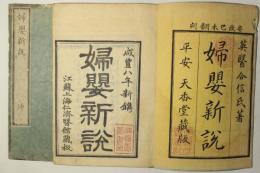 安政己未翻刻
英醫合信氏著
婦嬰新說
平安 天香堂藏版
咸豐八年新鐫
婦嬰新說
江蘇上海仁濟醫館藏板
婦嬰新說